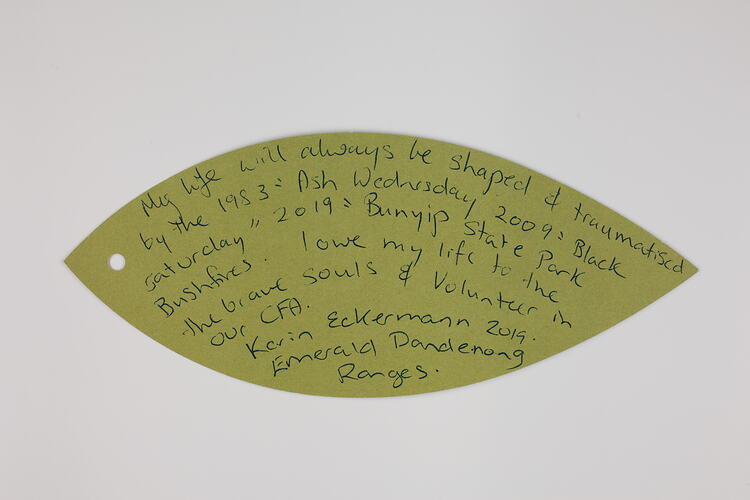 My life will always be shaped & traumatised
by the 1983: Ash Wednesday 2009: Black
Saturday " 2019: Bunyip State Park
Bushfires. I owe my life to the
the brave souls & Volunteer in
our CFA.
Karin Eckermann 2019.
Emerald Dandenong
Ranges.